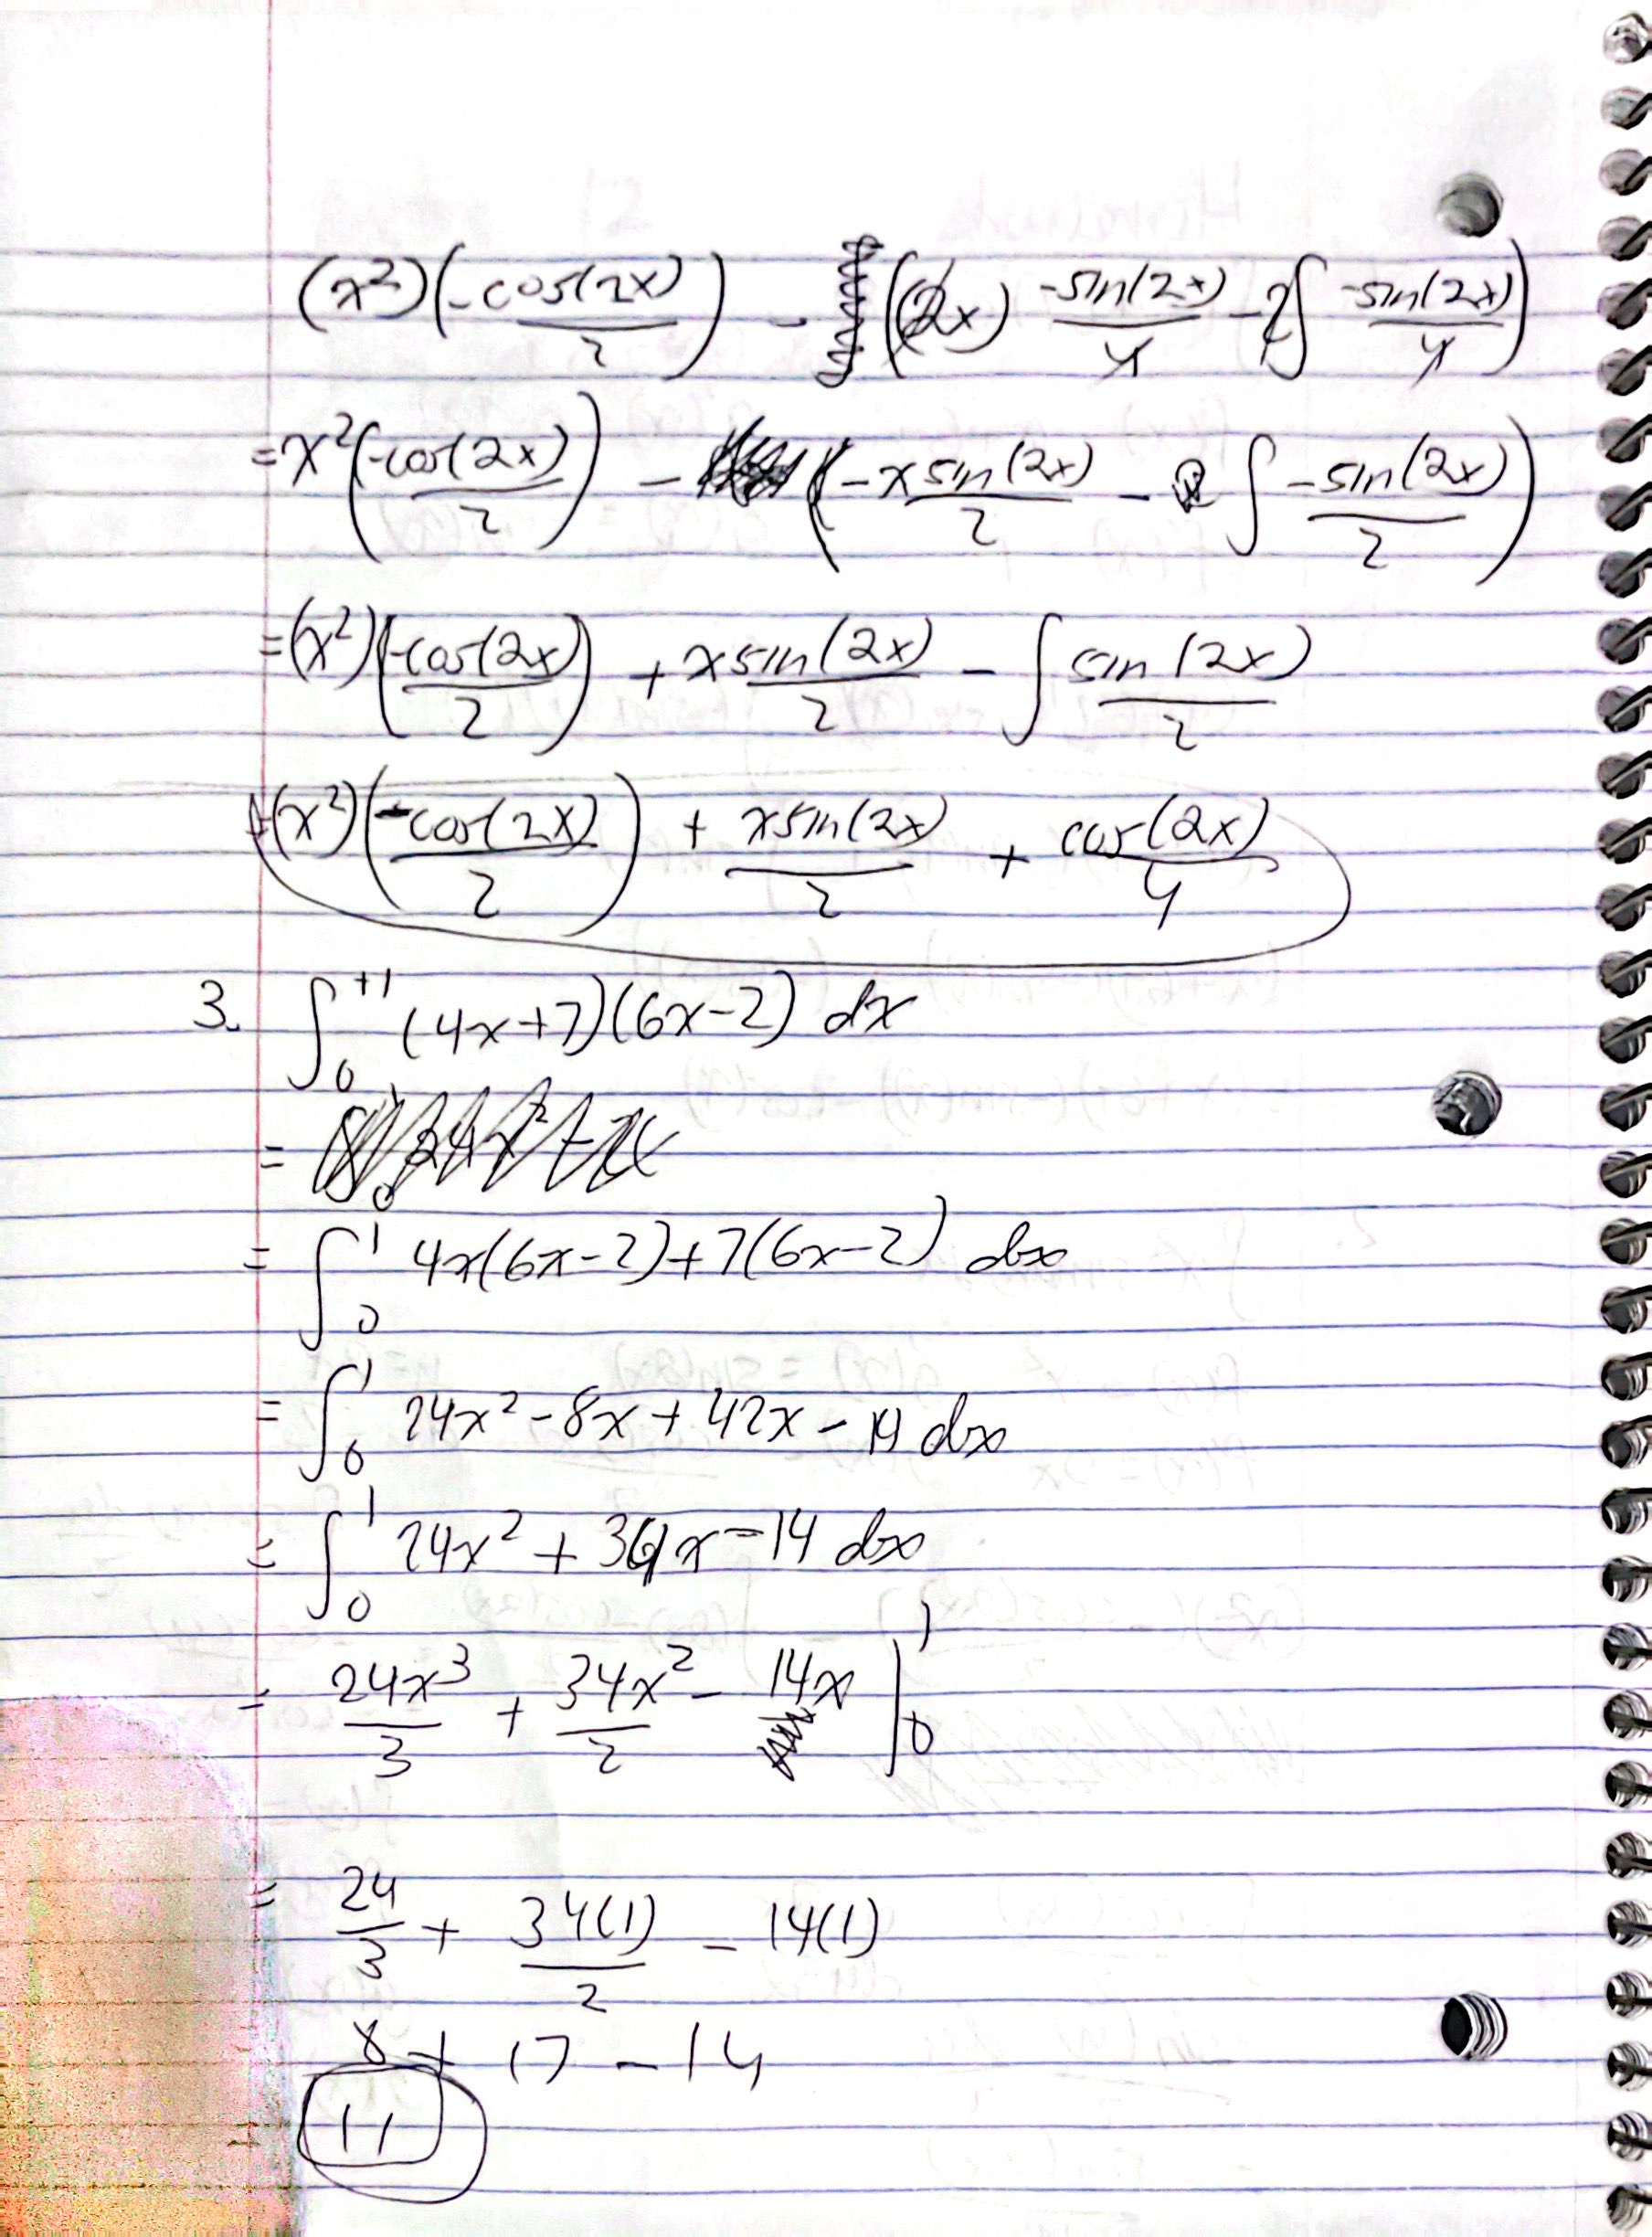 (x²)(-cos(2x)/2) - ((2x) -sin(2x)/4 - 2∫ -sin(2x)/4)
= x²(-cos(2x)/2) - (-x sin(2x)/2 - ∫ -sin(2x)/2)
= (x²)(-cos(2x)/2) + x sin(2x)/2 - ∫ sin(2x)/2
= (x²)(-cos(2x)/2) + x sin(2x)/2 + cos(2x)/4
3. ∫₀⁺¹ (4x+7)(6x-2) dx
=
= ∫₀¹ 4x(6x-2)+7(6x-2) dx
= ∫₀¹ 24x² - 8x + 42x - 14 dx
= ∫₀¹ 24x² + 34x - 14 dx
= 24x³/3 + 34x²/2 - 14x |₀¹
= 24/3 + 34(1)/2 - 14(1)
8 + 17 - 14
= 11